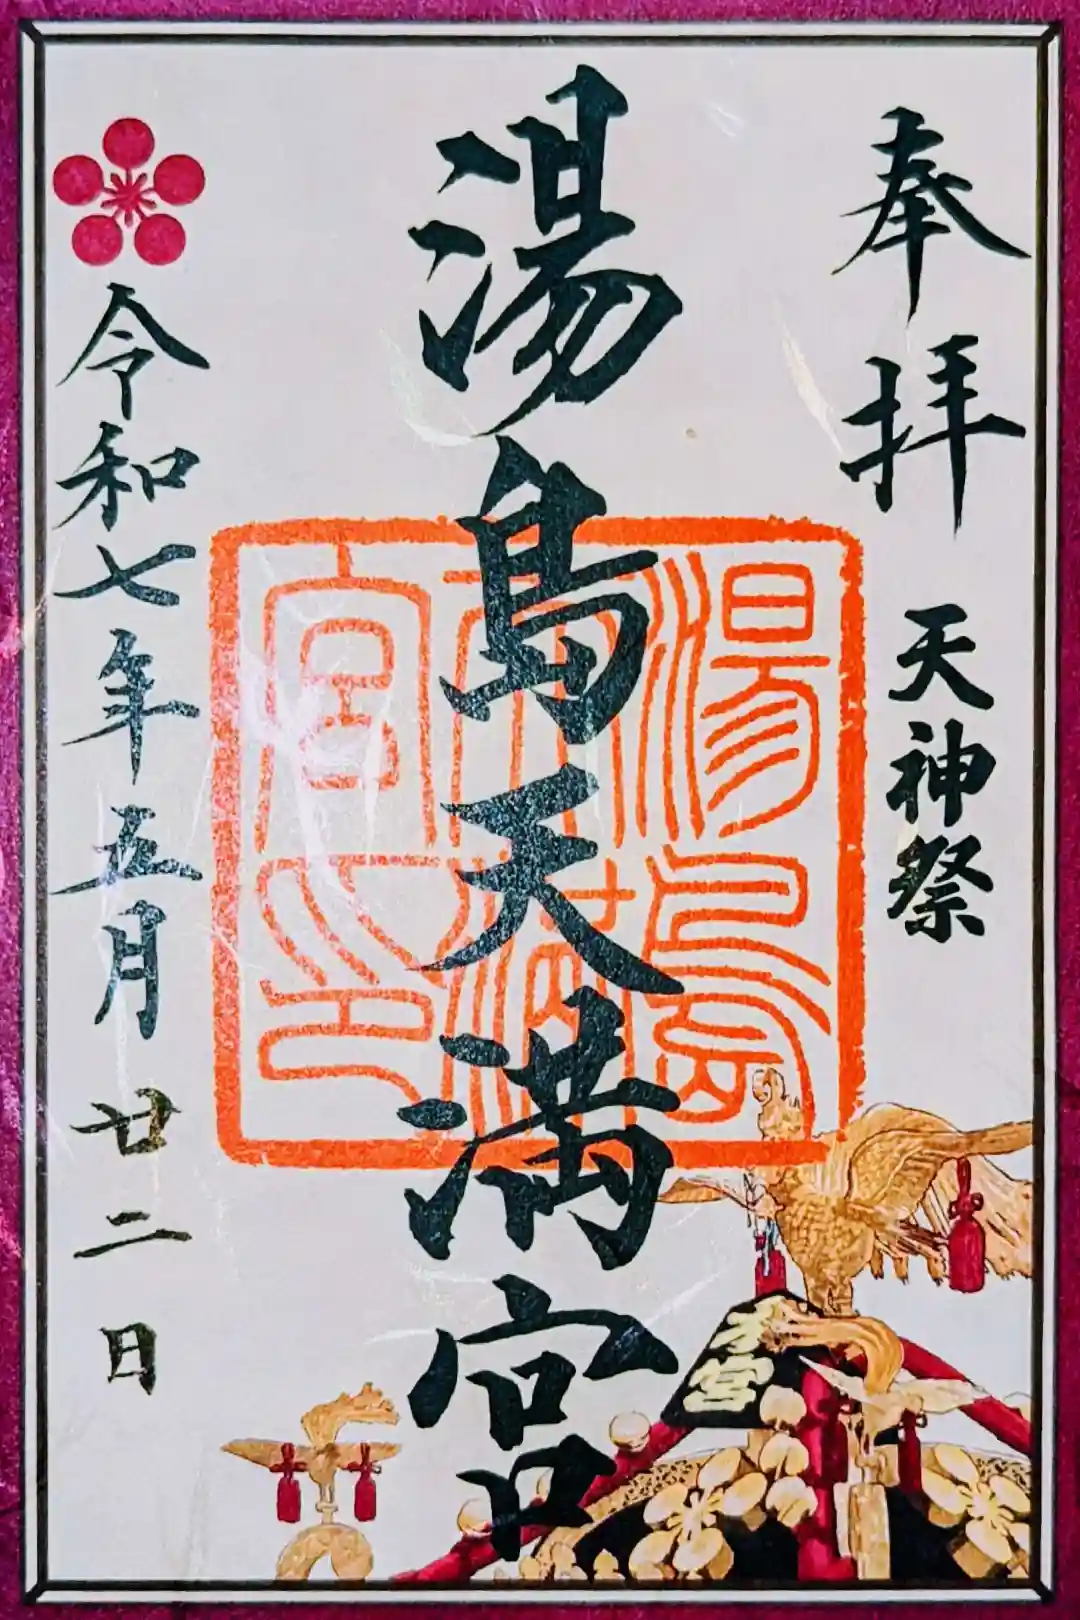 奉拝
天神祭
湯島天満宮
湯島天満宮印
令和七年五月廿二日